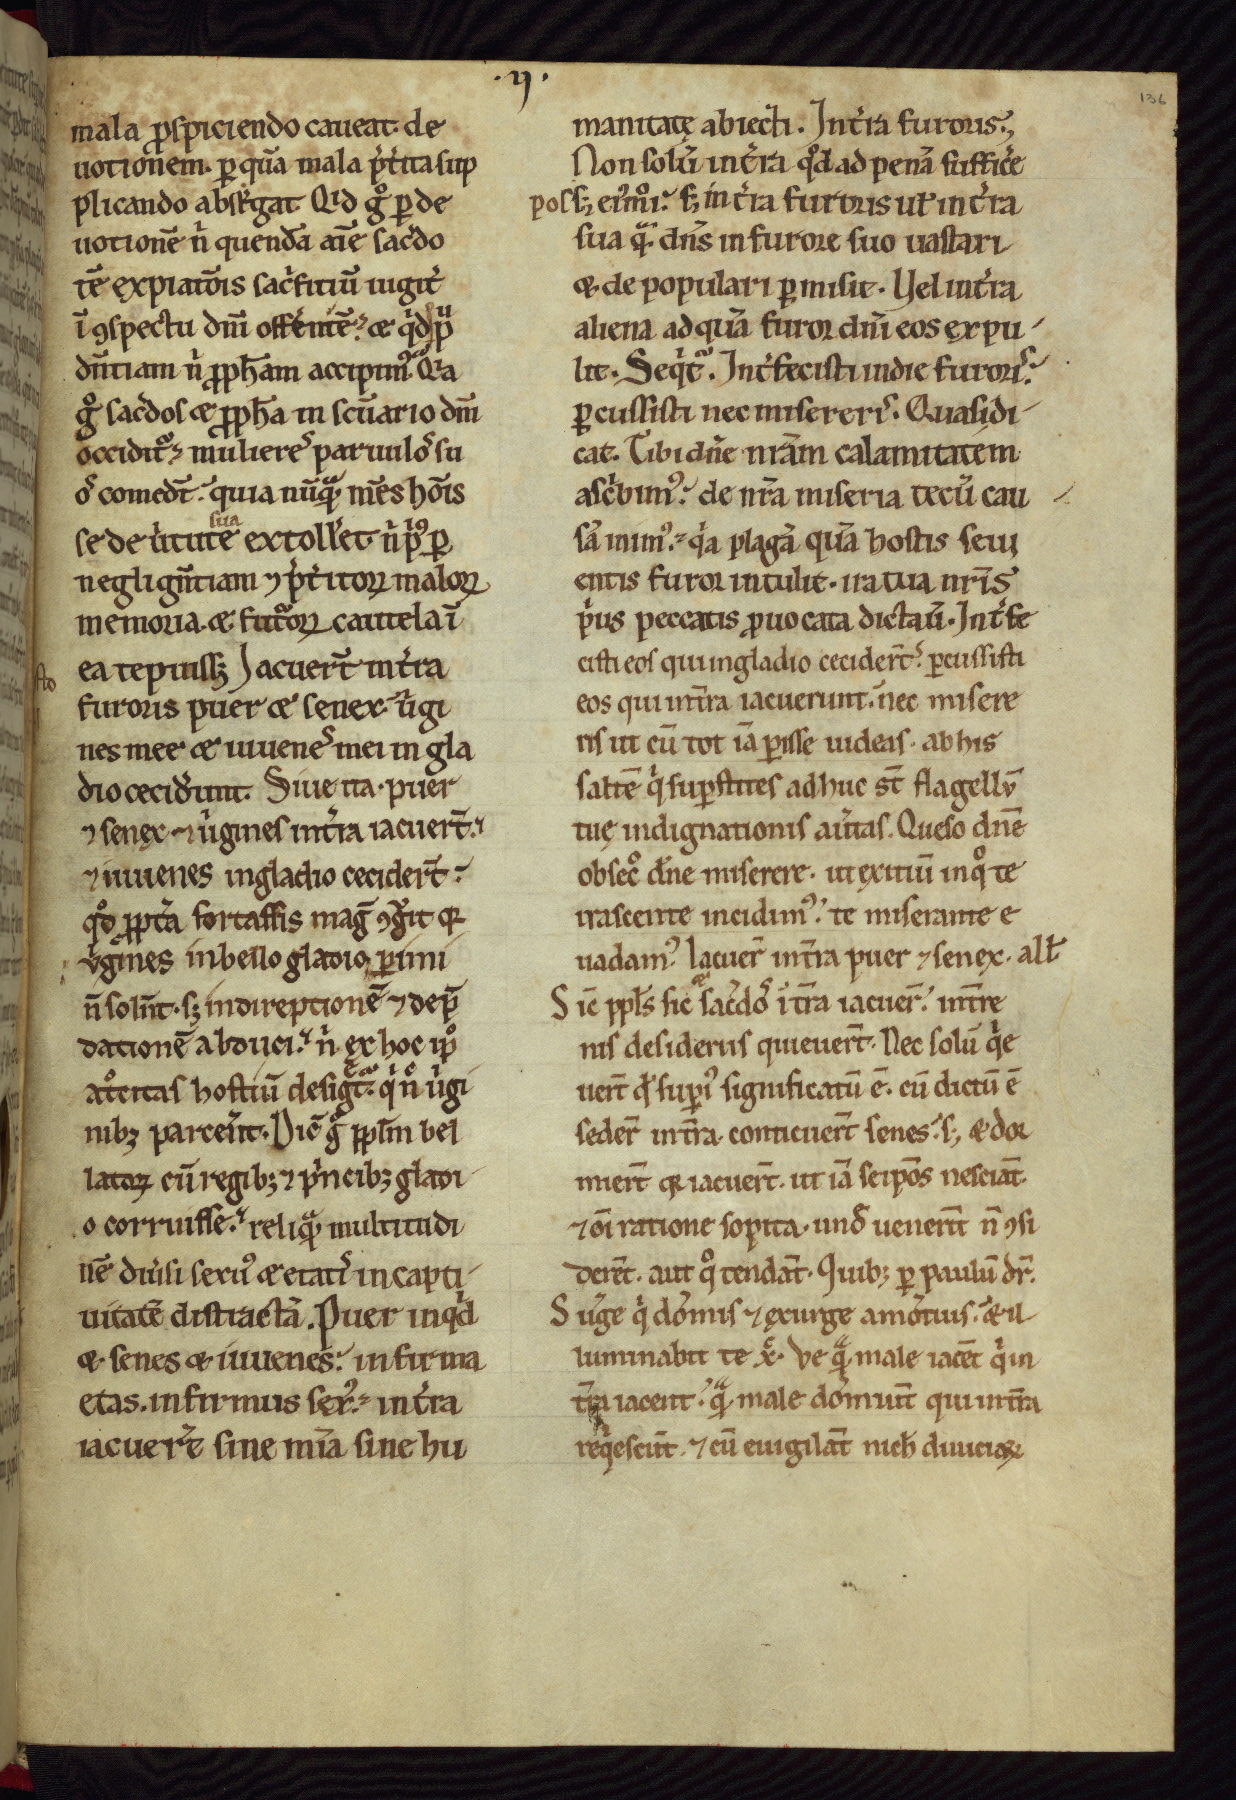 .ij.
136
mala ꝓspiciendo caueat. de
uotionem. ꝑ quā mala p̄t̾ita sup
plicando abst̾gat Qid gͦ ꝑ de
uotionē n̾ quendā aīe sac̾do
tē expiatōis sac̾ficiū iugit̾
ī ꝯspectu dn̄i offerentē? ⁊ qͥd ꝓ
uidn̄tiam n̾ ꝓph̄am accipimꝰ. Qa
gͦ sac̾dos ⁊ ꝓph̄a in sc̄uario dn̄i
occiditͦ. muliereˢ paruuloˢ su
oˢ comedt̄. quia nūqᷓ m̄s hōīs
se de u̾tute sua extoll̾et n̾ pͥꝰ ꝑ
neglign̄tiam ⁊ p̄t̾itoꝝ maloꝝ
memoria. ⁊ futᷓoꝝ cautela ī
ea tepuissꝫ Iacuert̄ int̾ra
furoris puer ⁊ senex. u̾gi
nes mee ⁊ iuueneˢ mei in gla
dio cecid̾unt. Siue ita. puer
⁊ senex ⁊ u̾gines int̾ra iacuert̄.
⁊ iuuenes in gladio cecidert̄.
qͦd ꝓpt̾a fortassis maḡ ꝯgͬit qꝛ
v̾gines in bello gladio ꝑimi
n̄ soln̄t. sꝫ in direptionē ⁊ dep̄
dationē abduci. n̾ ex hoc ipͦ
atͦcitas hostiū desigt̄ᷓ. qͥ n̄ u̾gi
nibꝫ parcer̄nt. Dic̄ gͦ pplm̄ bel
latoꝝ cū regibꝫ ⁊ pͥncibꝫ gladi
o corruisse. reliqᷓ multitudi
nē diu̾si sexꝰ ⁊ etatͥ in capti
uitatē distractā. Puer inqͥd
⁊ senes ⁊ iuuenes. infirma
etas. infirmus sexꝰ. int̾ra
iacuer̄t sine mīa sine hu
manitatę abiecti. In t̾ra furoris.
Non solū in t̾ra qͦd ad penā suffic̾e
possꝫ eīmͦi. sꝫ in t̾ra furoris uł in t̾ra
sua qᷓ dn̄s in furore suo uastari
⁊ depopulari ꝑmisit. Uel in t̾ra
aliena ad quā furor dn̄i eos expu
lit. Seqͥtᷓ. Int̾fecisti in die furoriˢ.
ꝑcussisti nec misererˢ. Quasi di
cat. Tibi dn̄e nr̄am calamitatem
asc̾bimꝰ. de nr̄a miseria tecū cau
sā inimꝰ. qͥa plagā quā hostis seui
entis furor intulit. ira tua nr̄is
pͥus peccatis ꝓuocata dictaū. Int̾fe
cisti eos qui in gladio cecidert̄. ꝑcussisti
eos qui in t̄ra iacuerunt. nec misere
ris ut cū tot iā ꝑisse uideas. ab his
saltē qͥ suꝑstites adhuc st̄ flagellū
tuę indignationis au̾tas. Queso dn̄e
obsecͦ dn̄e miserere. ut exitiū in qͦ te
irascente incidimꝰ. te miserante e
uadamꝰ. Iacuer̄ in t̄ra puer ⁊ senex. alł
Sic̄ ppl̄s sic ⁊ sac̾doˢ ī t̄ra iacuer̄. in t̄re
nis desideriis quieuert̄. Nec solū qͥe
uert̄ qd̾ supͥ significatū ē. cū dictū ē
seder̄ in t̄ra. conticuert̄ senes. sꝫ ⁊ dor
miert̄ qꝛ iacuert̄. ut iā seipōs nesciāt.
⁊ oī ratione sopita. und̾ uenerīt n̄ ꝯsi
derēt. aut qͦ tendāt. Quibꝫ ꝑ paulū dr̄.
Surge qͥ dormis ⁊ exurge a mortuis. ⁊ il
luminabit te xp̄c. Ve qᷓ male iacēt qͥ in
t̄ra iacent. qᷓ male dormiūt qui in t̄ra
reqͥescūt. ⁊ cū euigilāt nich̄ diuiciaꝝ